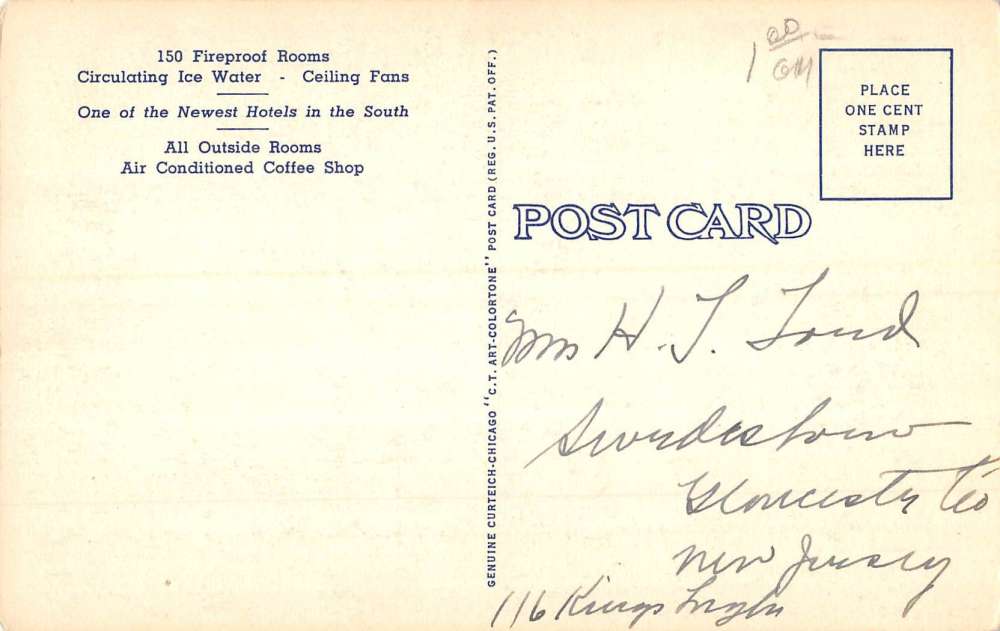 150 Fireproof Rooms
Circulating Ice Water - Ceiling Fans
One of the Newest Hotels in the South
All Outside Rooms
Air Conditioned Coffee Shop
GENUINE CURTEICH-CHICAGO "C.T. ART-COLORTONE" POST CARD (REG. U.S. PAT. OFF.)
1 00
PLACE
ONE CENT
STAMP
HERE
POST CARD
Mrs H. T. Loud
Swedesboro
Gloucester Co
New Jersey
116 Kings